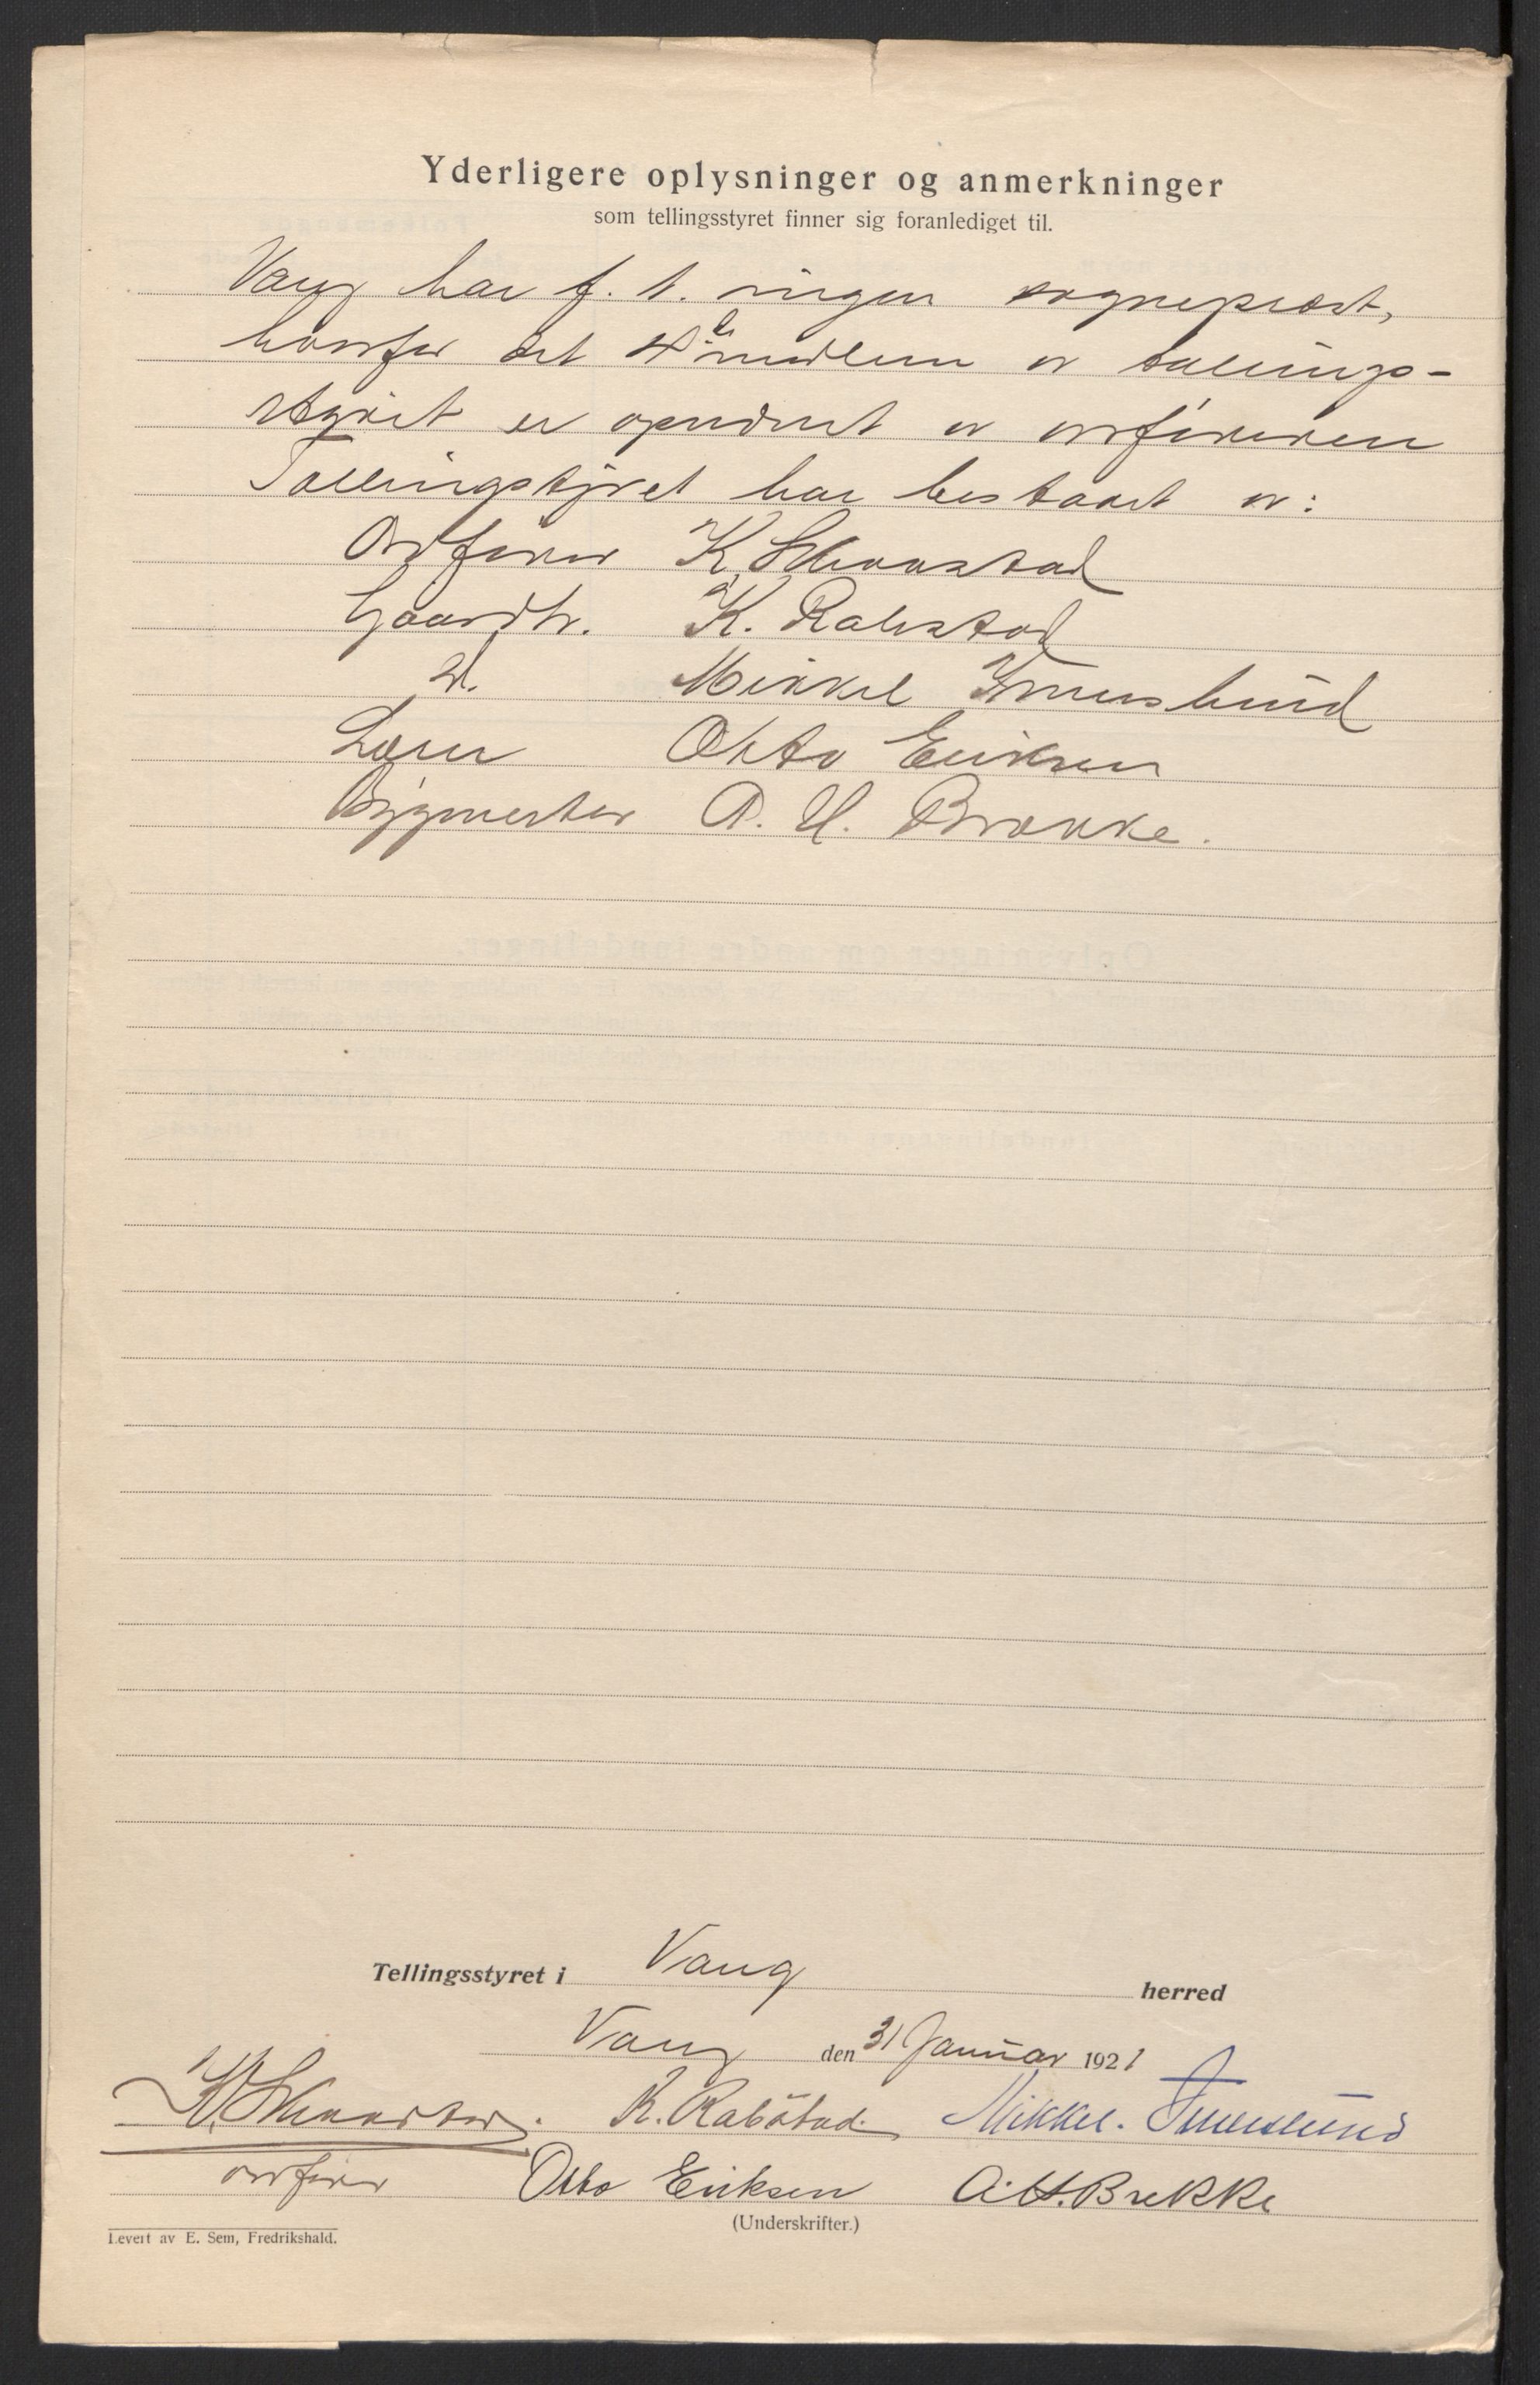 Yderligere oplysninger og anmerkninger
som tellingsstyret finner sig foranlediget til.
Vang har f. t. ingen sogneprest,
hvorfor det 4de medlem av tællings-
styret er opnævnt av ordføreren
Tællingsstyret har bestaaet av:
Ordfører K. Skaarstad
Gaardbr. K. Rabstad
D. Mikkel Imerslund
Lærer Otto Eriksen
Bygmester A. H. Brække.
Tellingsstyret i Vang herred
Vang den 31 Januar 1921
K. Rabstad. Mikkel. Imerslund
ordfører Otto Eriksen A. H. Brekke
(Underskrifter.)
Levert av E. Sem, Fredrikshald.